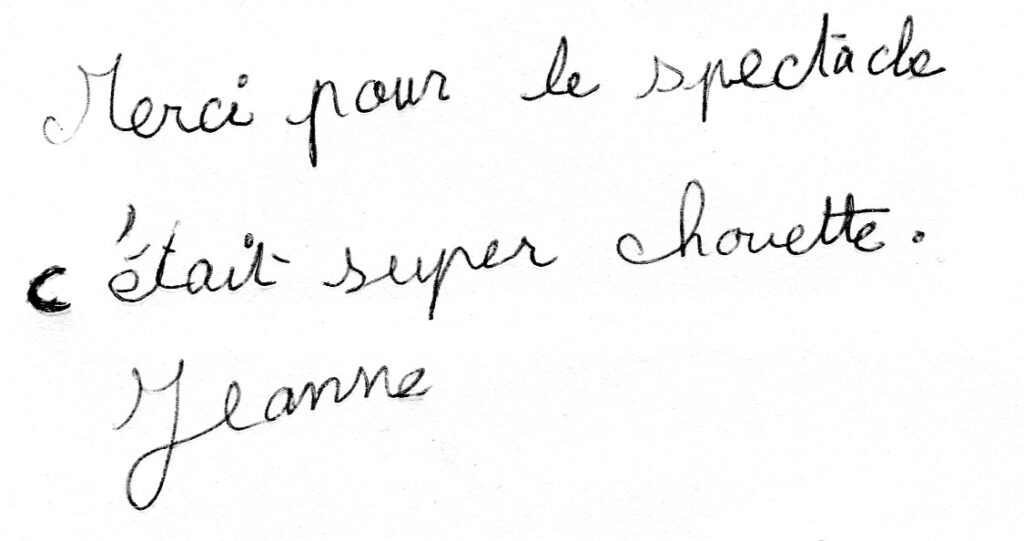 Merci pour le spectacle
c'était super chouette.
Jeanne